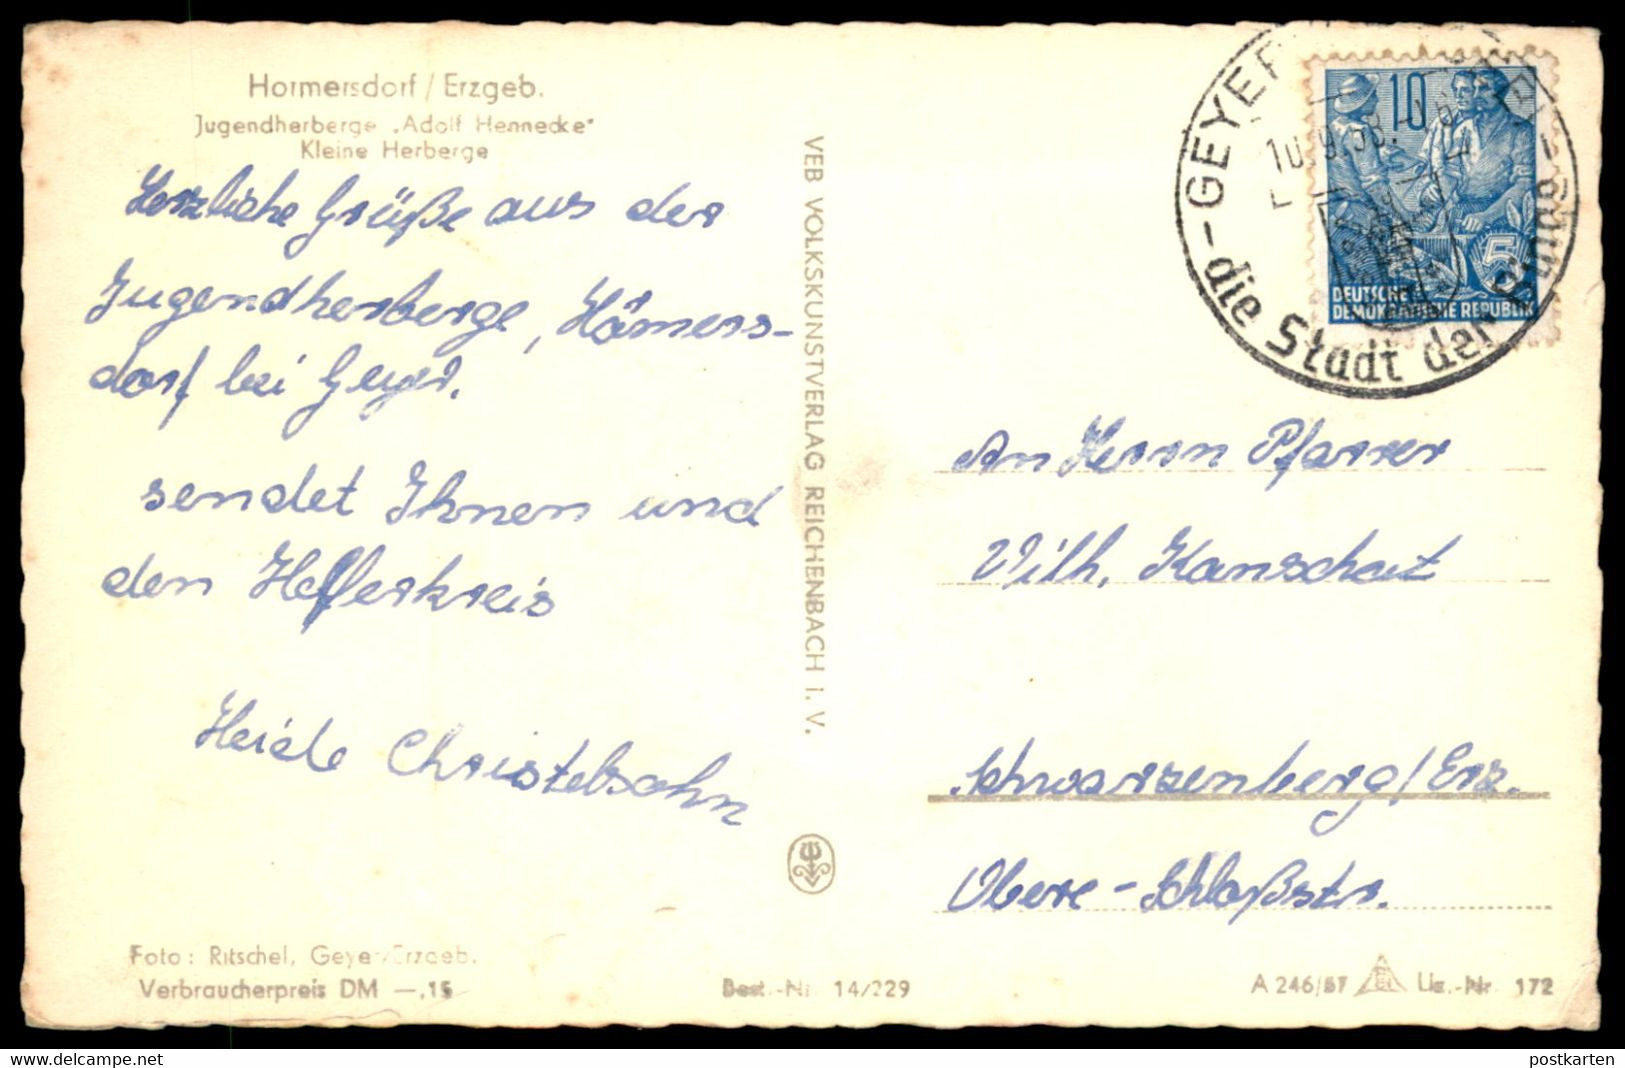 Hormersdorf / Erzgeb.
Jugendherberge „Adolf Hennecke"
Kleine Herberge
Herzliche Grüße aus der
Jugendherberge, Hömers-
dorf bei Geyer.
sendet Ihnen und
den Helferkreis
Heide Christelsohn
Foto: Ritschel, Geyer/Erzgeb.
Verbraucherpreis DM —,15
VEB VOLKSKUNSTVERLAG REICHENBACH i. V.
Best.-Nr. 14/229
GEYER
10.9.58.
– die Stadt der
10
5
DEUTSCHE
DEMOKRATISCHE REPUBLIK
An Herrn Pfarrer
Wilh. Kanschat
Schwarzenberg/Erz.
Obere-Schloßstr.
A 246/57 Liz.-Nr. 172
postkarten